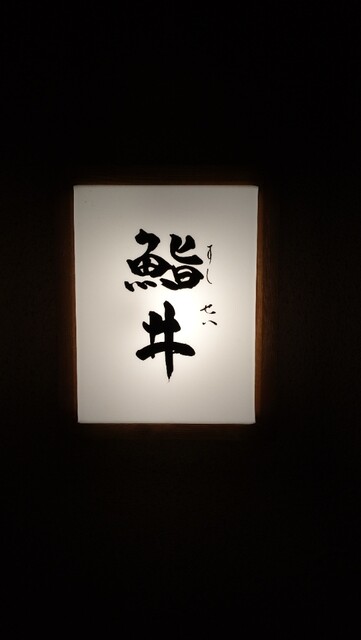 鮨井
すし せい